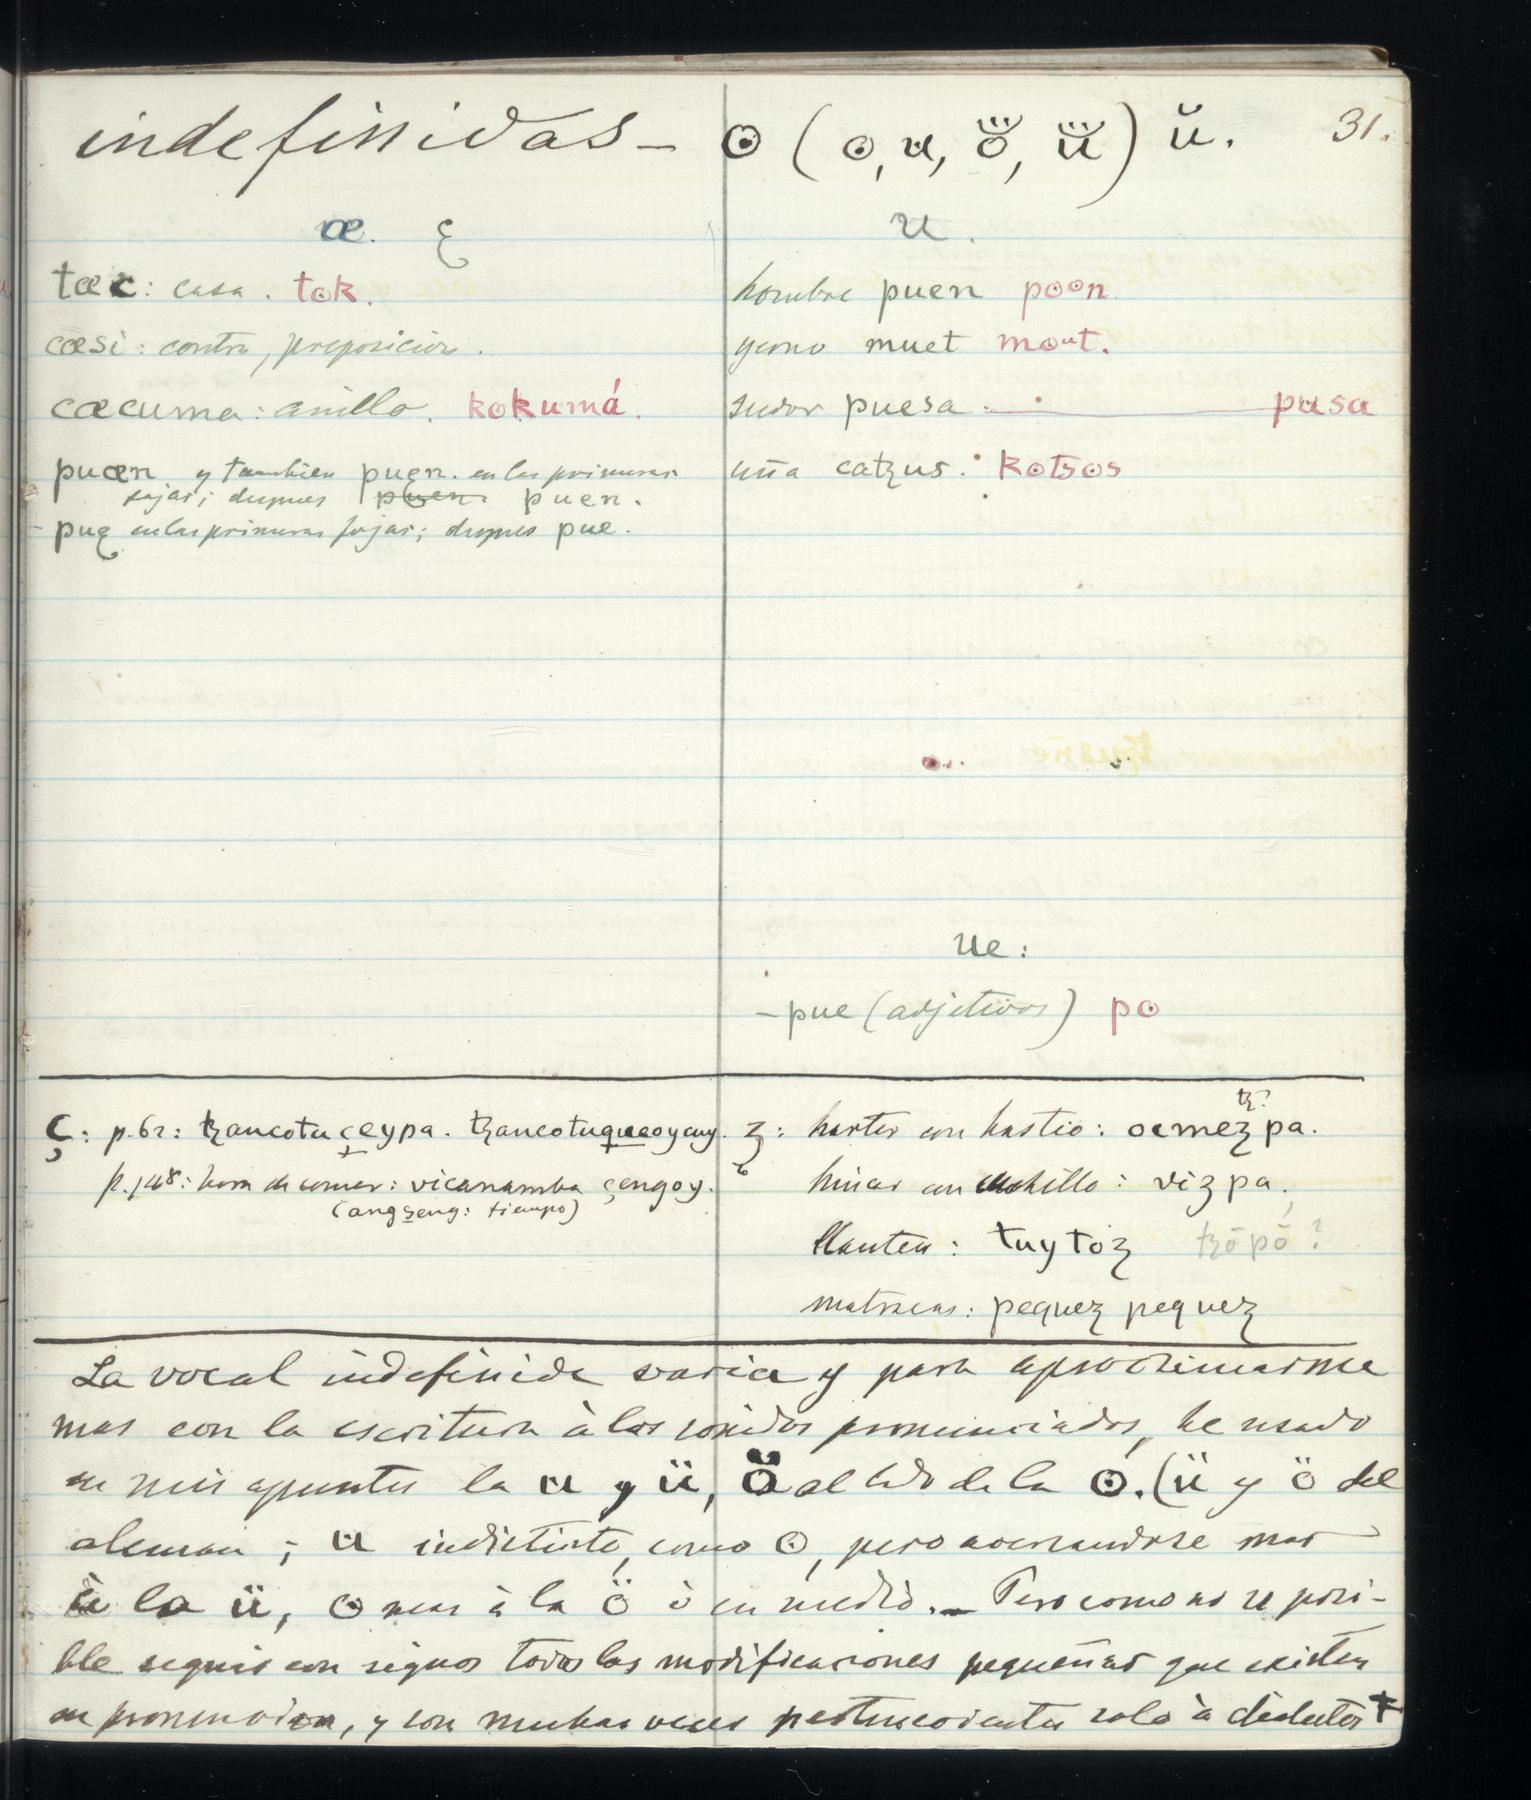 indefinidas – ʘ (ʘ, u, ö̆, ü̆) ŭ. 31.
æ. ę
tæc: casa. tʘk.
cæsi: contra, preposicion.
cæcuma: anillo. kʘkumá.
puæn y tambien puęn. en las primeras
fojas; despues puen.
- puę en las primeras fojas; despues pue.
u.
hombre puen pʘʘn
yerno muet mʘut.
sudor puesa. pusa
uña catzus. kʘtsʘs
ue:
– pue (adjetivos) pʘ
ç: p. 62: tzancotuçeypa. tzancotuqueoycuy.
p. 148: hora de comer: vicanamba çengoy.
(angseng: tiempo)
ʒ: hartar con hastio: ocmeʒpa. tz?
hincar con cuchillo: viʒpa.
llanten: tuytoʒ tzōpō?
matracas: pequeʒ pequeʒ
La vocal indefinida varia y para aproximarme
mas con la escritura à los sonidos pronunciados, he usado
en mis apuntes la u y ü, ö al lado de la ʘ. (ü y ö del
aleman; u indistinto, como ʘ, pero acercandose mas
à la ü, ʘ mas à la ö ò en medio. – Pero como no es posi-
ble seguir con signos todas las modificaciones pequeñas que existen
en pronunciacion, y son muchas veces pertenecientes solo à dialectos +